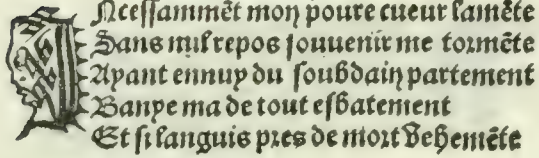 INcessammẽt mon poure cueur lamẽte
Sans nul repos souuenir me tormẽte
Ayant ennuy du soubdain partement
Banye ma de tout esbatement
Et si languis pres de mort vehemẽte